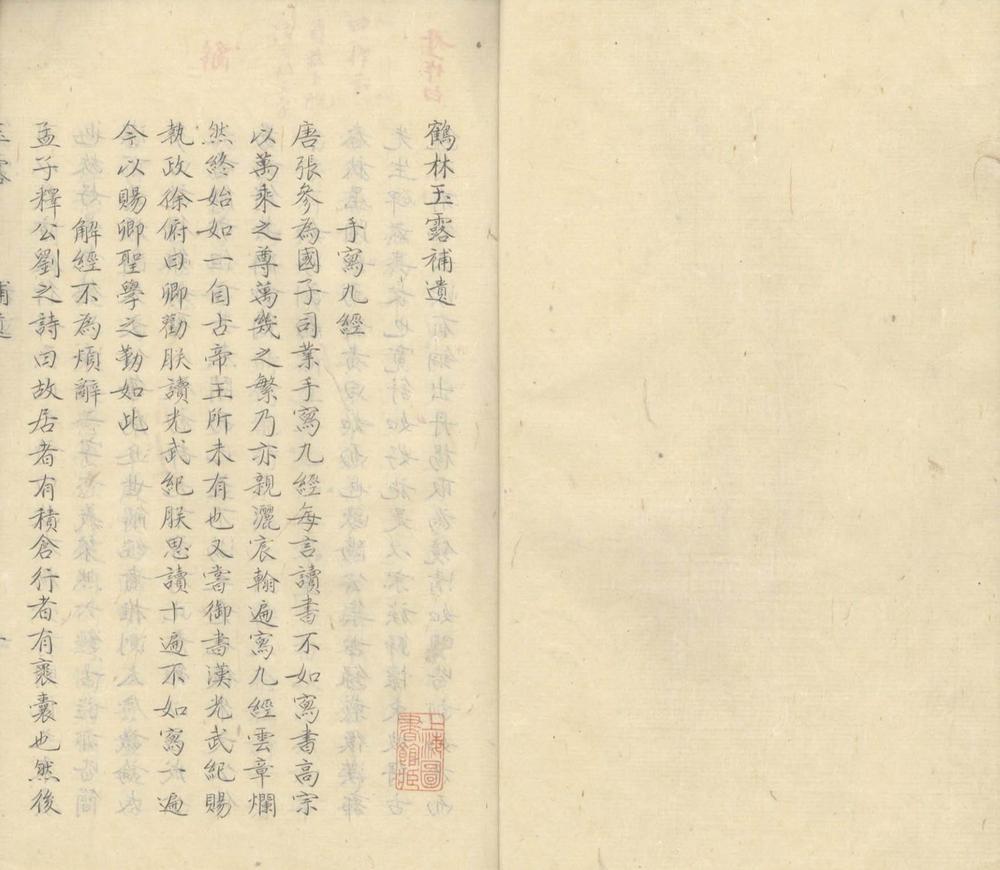 鶴林玉露補遺
手寫九經
唐張參為國子司業手寫九經每言讀書不如寫書高宗
以萬乘之尊萬幾之繁乃亦親灑宸翰遍寫九經雲章爛
然終始如一自古帝王所未有也又嘗御書漢光武紀賜
執政徐俯曰卿勸朕讀光武紀朕思讀十遍不如寫一遍
今以賜卿聖學之勤如此
解經不為煩辭
孟子釋公劉之詩曰故居者有積倉行者有裹囊也然後
上海圖書館藏